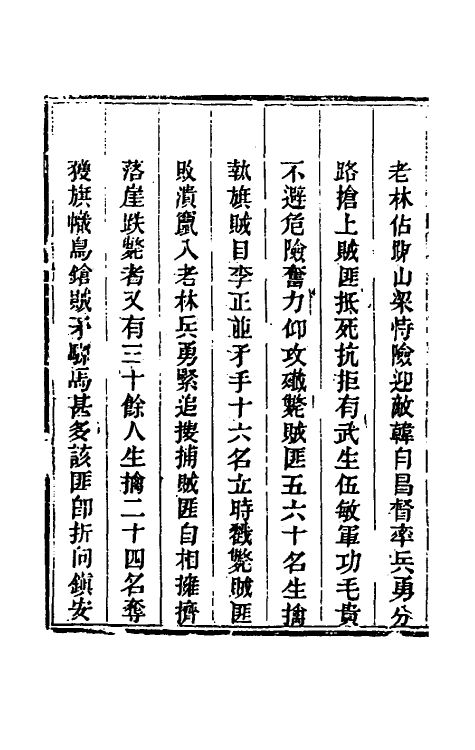 老林佔踞山梁恃險迎敵韓自昌督率兵勇分
路搶上賊匪抵死抗拒有武生伍敏軍功毛貴
不避危險奮力仰攻殲斃賊匪五六十名生擒
執旗賊目李正並矛手十六名立時戳斃賊匪
敗潰竄入老林兵勇緊追搜捕賊匪自相擁擠
落崖跌斃者又有三十餘人生擒二十四名奪
獲旗幟鳥鎗賊矛騾馬甚多該匪卽折向鎭安